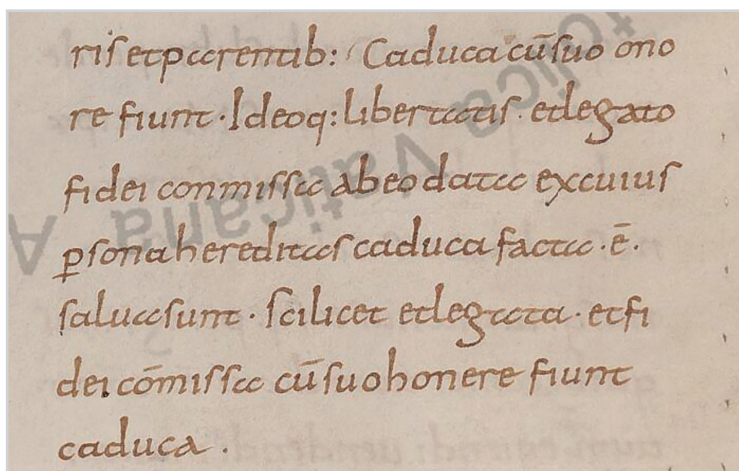 ris et parentib: Caduca cū suo ono
re fiunt · Ideoq: libertatis · et legato
fidei conmissa ab eo data ex cuius
p̱sona hereditas caduca facta · ē ·
salua sunt · scilicet et legata · et fi
dei cōmissa cū suo honere fiunt
caduca ·